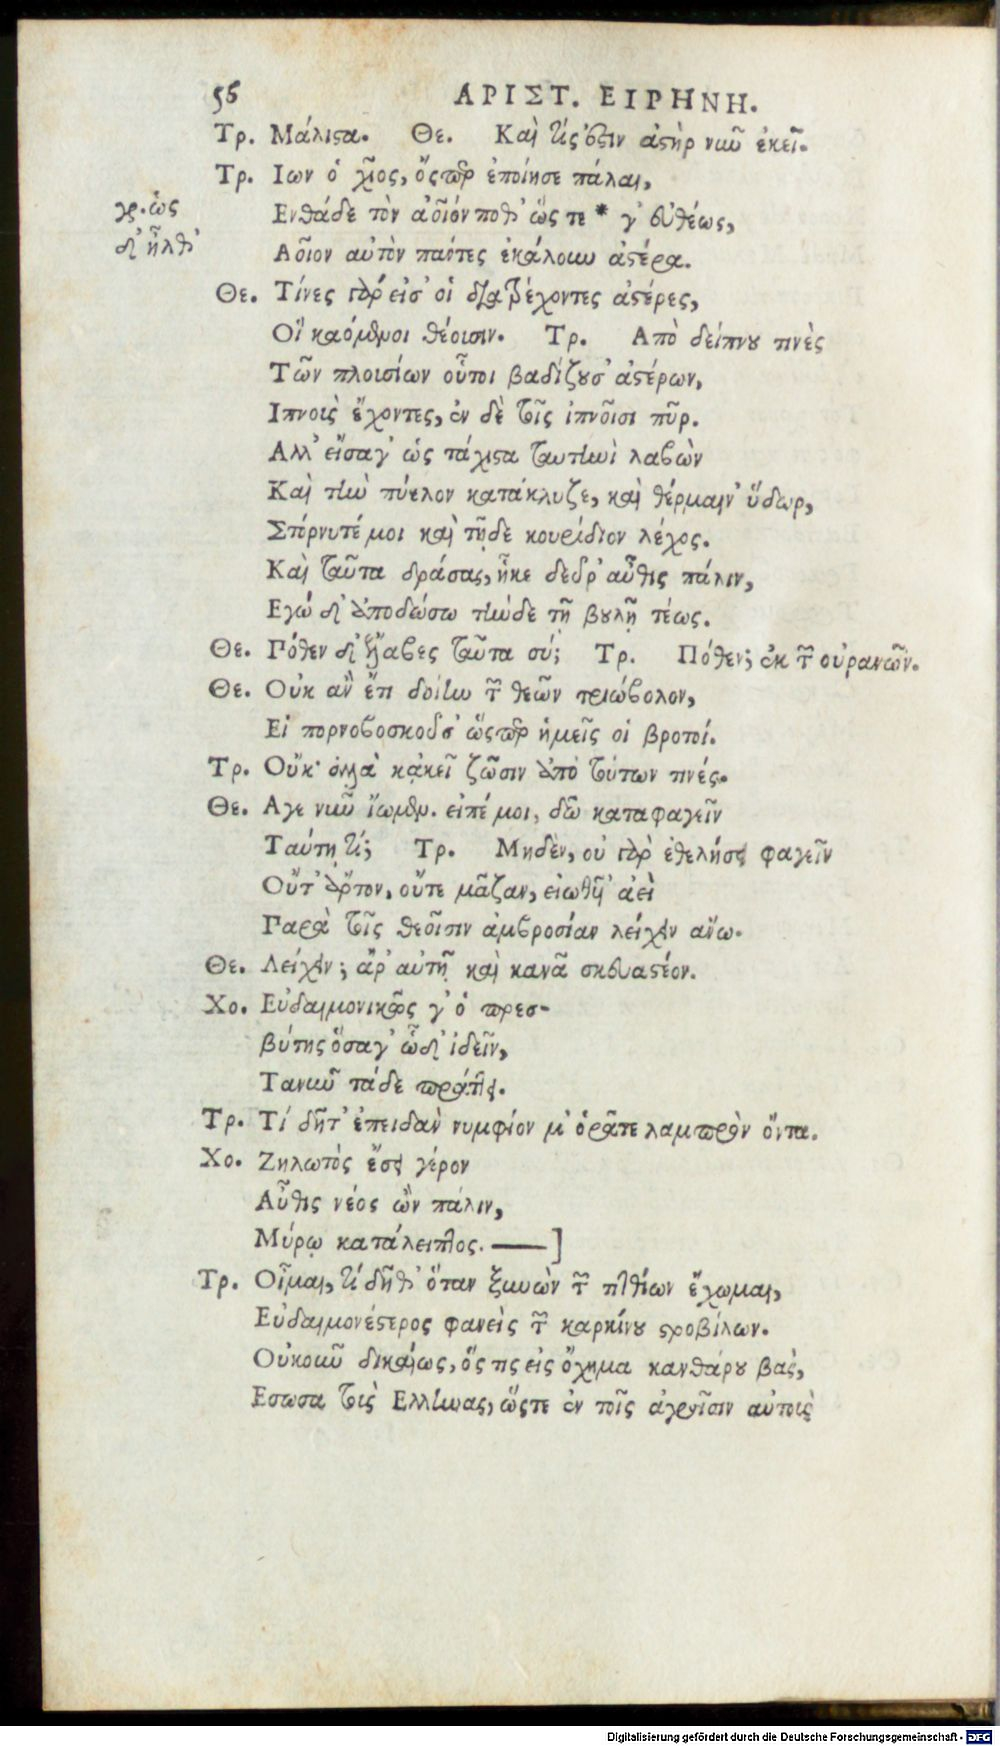 56 ΑΡΙΣΤ. ΕΙΡΗΝΗ.
Τρ. Μάλιστα. Θε. Καὶ τίς ἐστιν ἀστὴρ νῦν ἐκεῖ.
Τρ. Ιων ὁ χῖος, ὅσπερ ἐποίησε πάλαι,
γρ. ὡς
Ενθάδε τὸν ἀοῖόν ποθ' ὥς τε * γ' εὐθέως,
δ' ἦλθ'
Αοῖον αὐτὸν πάντες ἐκάλουν ἀστέρα.
Θε. Τίνες γάρ εἰσ' οἱ διατρέχοντες ἀστέρες,
Οἳ καόμενοι θέουσιν. Τρ. Απὸ δείπνου τινὲς
Τῶν πλουσίων οὗτοι βαδίζουσ' ἀστέρων,
Ιπνοὺς ἔχοντες, ἐν δὲ τοῖς ἰπνοῖσι πῦρ.
Αλλ' εἴσαγ' ὡς τάχιστα ταυτηνὶ λαβὼν
Καὶ τὴν πύελον κατάκλυζε, καὶ θέρμαιν' ὕδωρ,
Στόρνυτέ μοι καὶ τῇδε κουρίδιον λέχος.
Καὶ ταῦτα δράσας, ἧκε δεῦρ' αὖθις πάλιν,
Εγώ δ' ἀποδώσω τήνδε τῇ βουλῇ τέως.
Θε. Πόθεν δ' ἔλαβες ταῦτα σύ; Τρ. Πόθεν; ἐκ τῶν οὐρανῶν.
Θε. Οὐκ ἂν ἔτι δοίην τῶν θεῶν τριώβολον,
Εἰ πορνοβοσκοῦσ' ὥσπερ ἡμεῖς οἱ βροτοί.
Τρ. Οὔκ· ἀλλὰ κᾀκεῖ ζῶσιν ἀπὸ τούτων τινές.
Θε. Αγε νῦν ἴωμεν. εἰπέ μοι, δῶ καταφαγεῖν
Ταύτῃ τί; Τρ. Μηδὲν, οὐ γὰρ ἐθελήσει φαγεῖν
Οὔτ' ἄρτον, οὔτε μᾶζαν, εἰωθῆ' ἀεὶ
Παρὰ τοῖς θεοῖσιν ἀμβροσίαν λείχειν ἄνω.
Θε. Λείχειν; ἆρ' αὐτῇ καὶ κανᾶ σκευαστέον.
Χο. Εὐδαιμονικῶς γ' ὁ πρεσ-
βύτης ὅσαγ' ὧδ' ἰδεῖν,
Τανῦν τάδε πράττεις.
Τρ. Τί δῆτ' ἐπειδὰν νυμφίον μ' ὁρᾶτε λαμπρὸν ὄντα.
Χο. Ζηλωτὸς ἔσει γέρον
Αὖθις νέος ὢν πάλιν,
Μύρῳ κατάλειπτος. ——]
Τρ. Οἶμαι, τί δῆθ' ὅταν ξυνὼν τῶν τιτθίων ἔχωμαι,
Εὐδαιμονέστερος φανεὶς τῶν καρκίνου στροβίλων.
Οὐκοῦν δικαίως, ὅς τις εἰς ὄχημα κανθάρου βὰς,
Εσωσα τοὺς Ελλήνας, ὥστε ἐν τοῖς ἀγροῖσιν αὐτοὺς
Digitalisierung gefördert durch die Deutsche Forschungsgemeinschaft - DFG